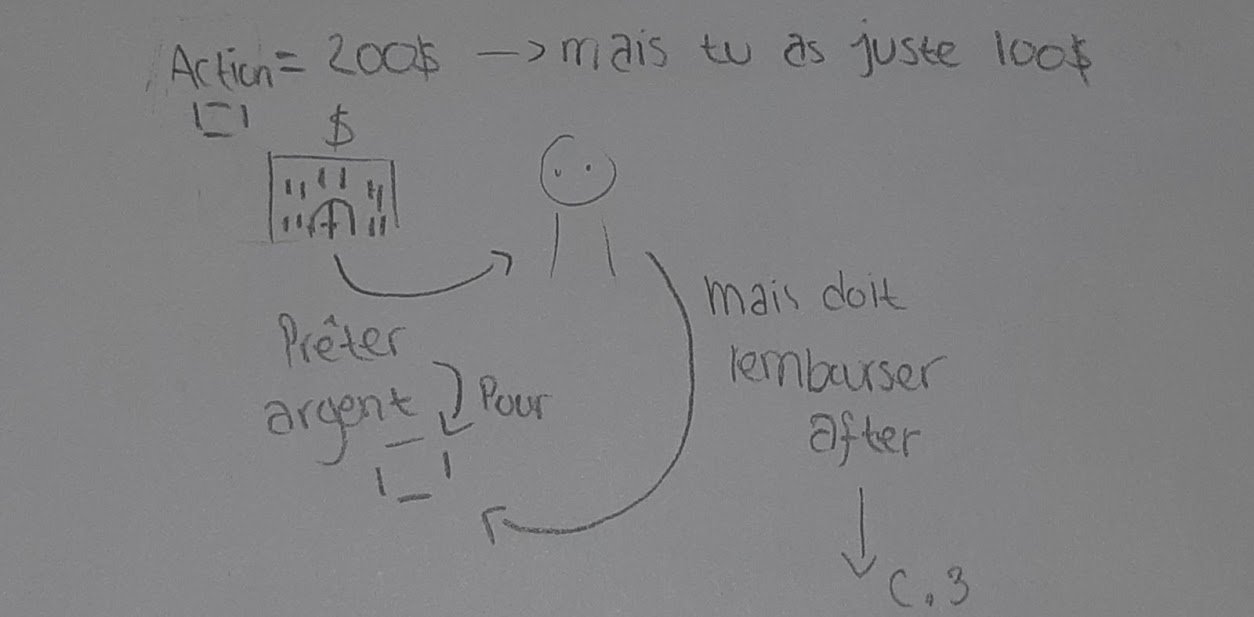 Action = 200$ → mais tu as juste 100$
$
Prêter
argent
Pour
mais doit
rembourser
after
C.3